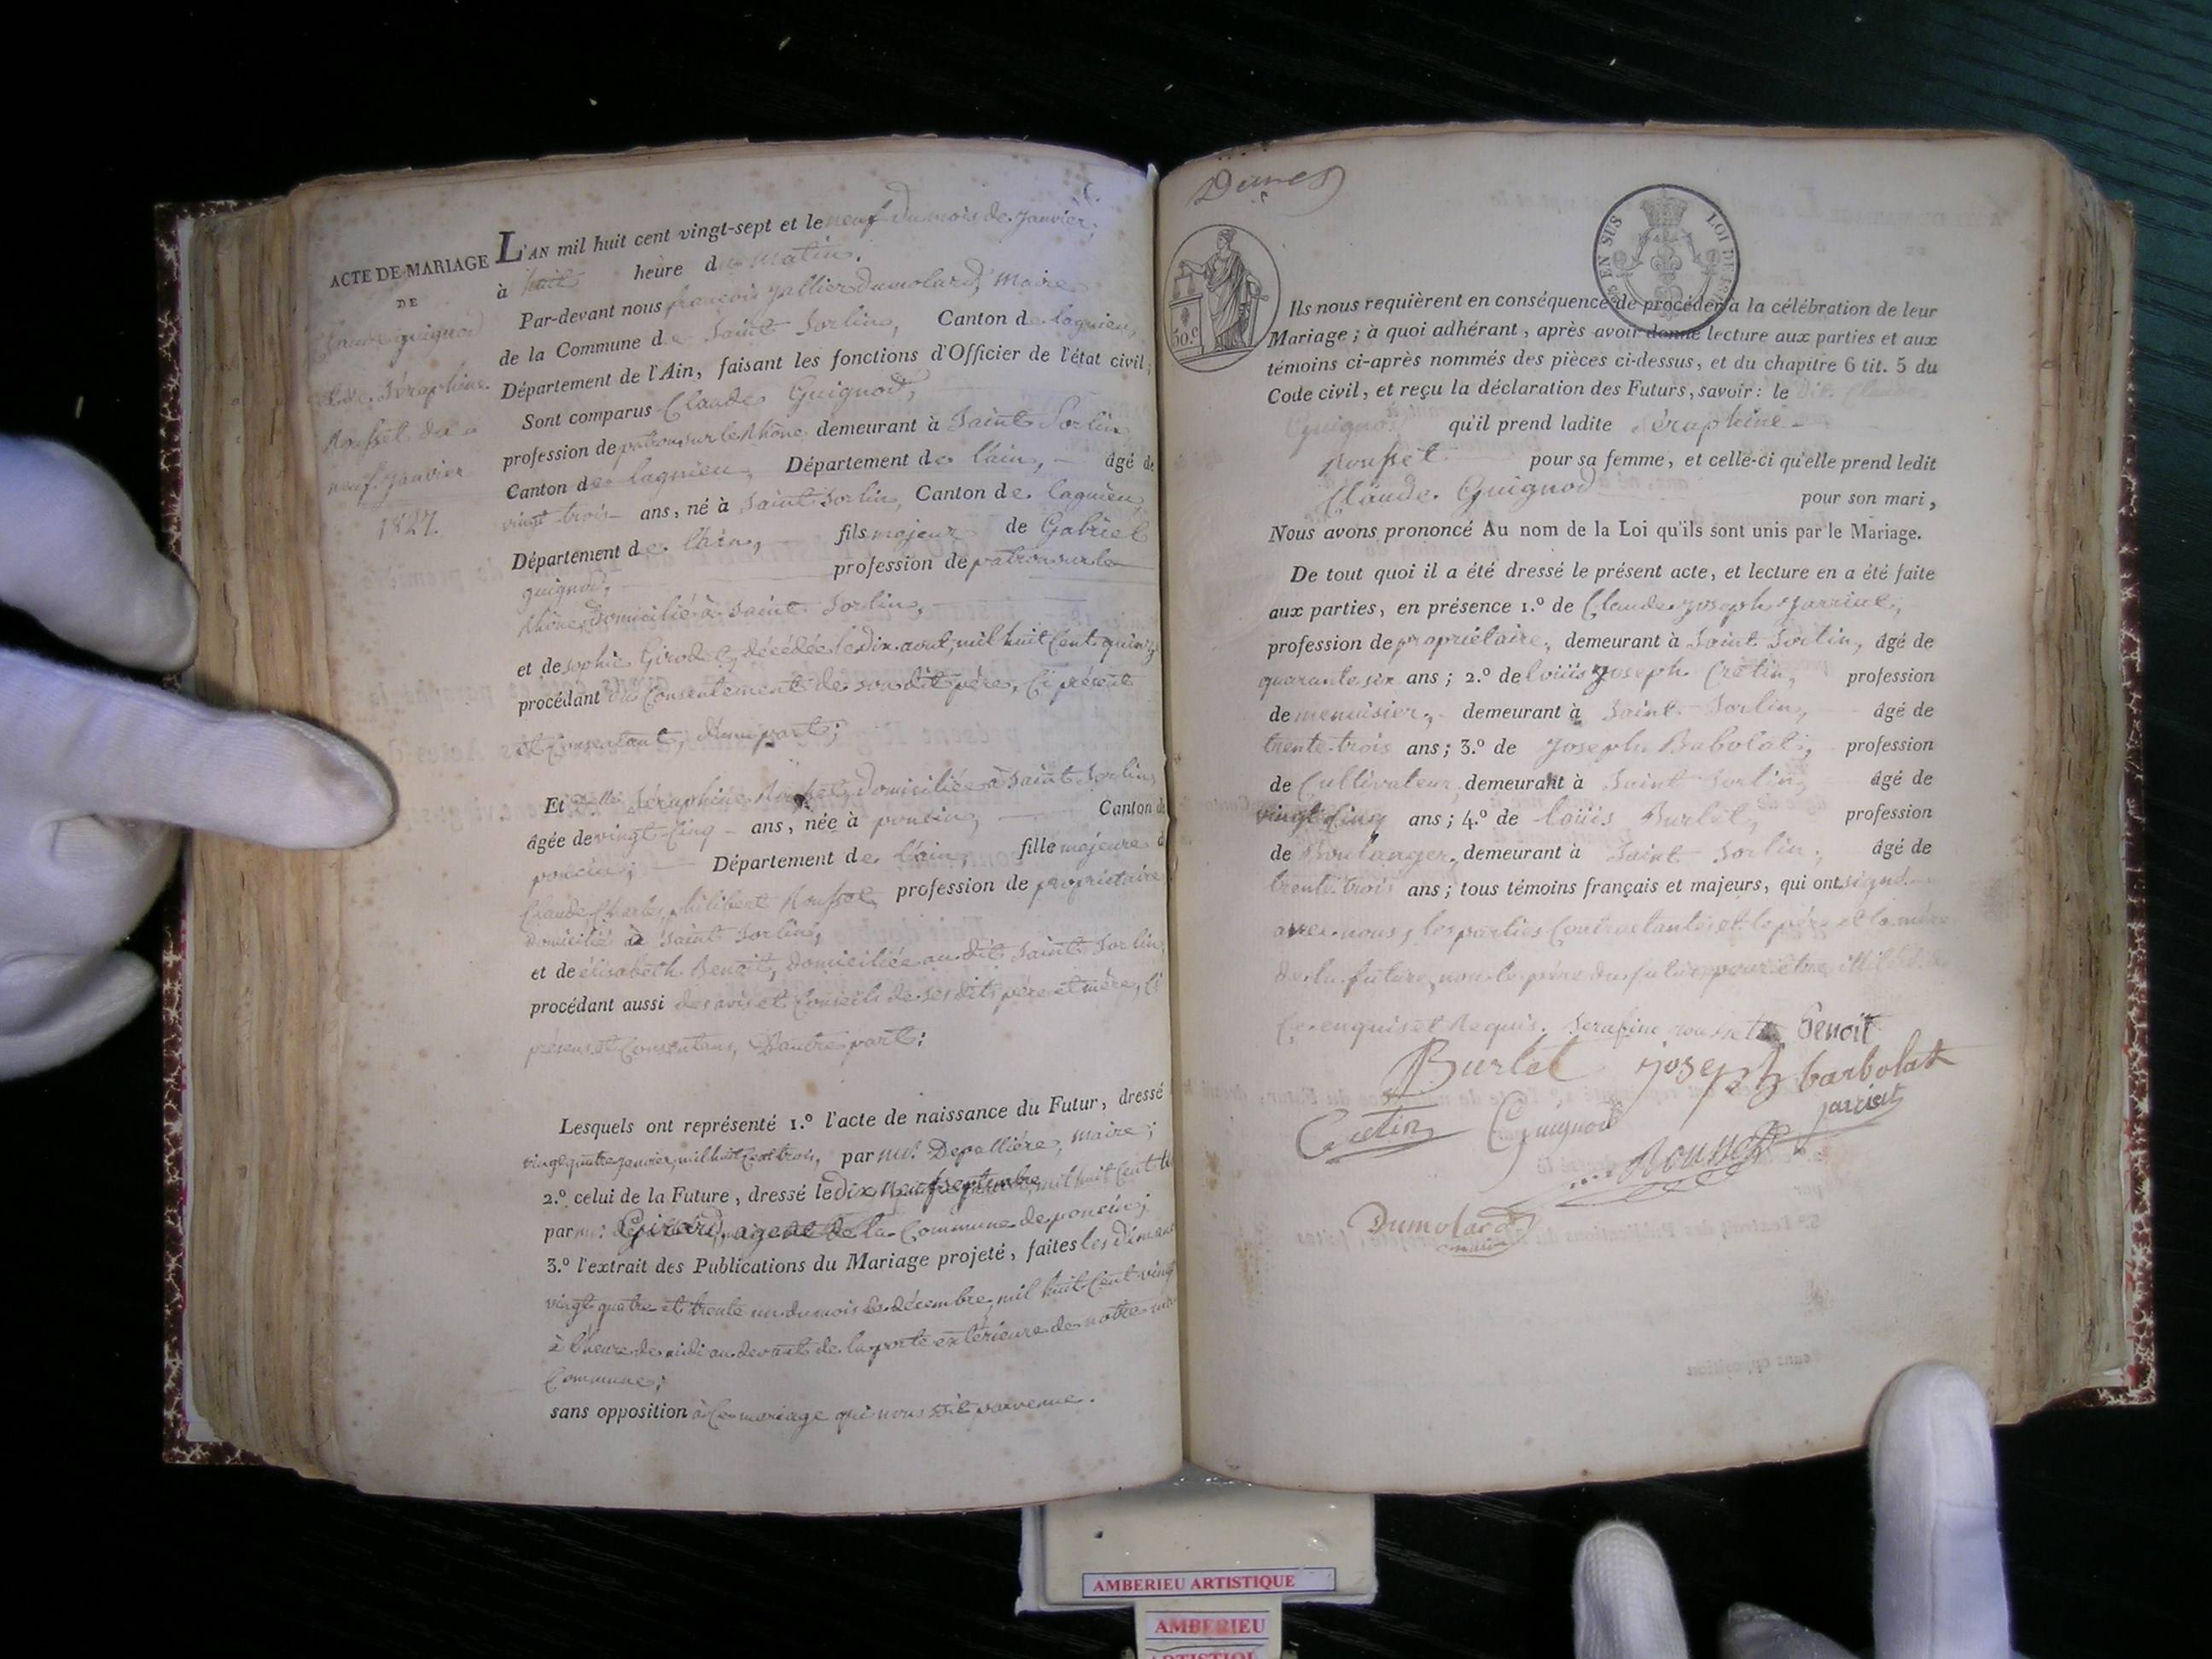 ACTE DE MARIAGE
DE
Claude guignod
et de Séraphine
Rousset du
neuf janvier
1827.
L'AN mil huit cent vingt-sept et le neuf du mois de janvier,
à huit heure du matin.
Par-devant nous françois jallier Dumolard, Maire
de la Commune de Saint Sorlin, Canton de lagnieu,
Département de l'Ain, faisant les fonctions d'Officier de l'état civil;
Sont comparus Claude Guignod,
profession de patron sur le Rhône demeurant à Saint Sorlin
Canton de lagnieu, Département de l'ain, âgé de
vingt-trois ans, né à Saint Sorlin, Canton de lagnieu,
Département de l'ain, fils majeur de Gabriel
guignod, profession de patron sur le
Rhône, domicilié à Saint Sorlin,
et de sophie Girodet, décédée le dix aout, mil huit cent quinze
procédant du Consentement de son dit père, Ci présent
et Consentant, d'une part;
Et Séraphine Rousset, domiciliée à Saint Sorlin,
âgée de vingt-Cinq ans, née à poncin, Canton de
poncin, Département de l'ain, fille majeure d
Claude Charles philibert Rousset, profession de propriétaire
domicilié à Saint Sorlin,
et de élisabeth Benoit, domiciliée au dit Saint Sorlin
procédant aussi des avis et Conseils de ses dits père et mère, Ci
présens et Consentans, D'autre part;
Lesquels ont représenté 1.º l'acte de naissance du Futur, dressé
vingt quatre janvier, mil huit Cent trois, par mr. Depallière, maire;
2.º celui de la Future, dressé le dix neuf septembre, mil huit Cent
par mr. Girard, agent de la Commune de poncin;
3.º l'extrait des Publications du Mariage projeté, faites les diman
vingt quatre et trente un du mois de décembre, mil huit Cent vingt
à l'heure de midi au devant de la porte extérieure de notre
Commune;
sans opposition à Ce mariage qui nous soit parvenue.
EN SUS
LOI DE
50.c
Ils nous requièrent en conséquence de procéder à la célébration de leur
Mariage; à quoi adhérant, après avoir donné lecture aux parties et aux
témoins ci-après nommés des pièces ci-dessus, et du chapitre 6 tit. 5 du
Code civil, et reçu la déclaration des Futurs, savoir: le dit Claude
Guignod qu'il prend ladite Séraphine
Rousset pour sa femme, et celle-ci qu'elle prend ledit
Claude Guignod pour son mari,
Nous avons prononcé Au nom de la Loi qu'ils sont unis par le Mariage.
De tout quoi il a été dressé le présent acte, et lecture en a été faite
aux parties, en présence 1.º de Claude Joseph Jarriat,
profession de propriétaire, demeurant à Saint Sorlin, âgé de
quarante six ans; 2.º de louis Joseph Crétin, profession
de menuisier, demeurant à Saint Sorlin, âgé de
trente-trois ans; 3.º de Joseph Babolat, profession
de Cultivateur, demeurant à Saint Sorlin, âgé de
vingt Cinq ans; 4.º de louis Burlet, profession
de Boulanger, demeurant à Saint Sorlin, âgé de
trente trois ans; tous témoins français et majeurs, qui ont signé
avec nous, les parties Contractantes et le père et la mère
de la future, non le père du futur pour être illitéré
Ce enquis et Requis. Serafine rousset Benoit
Burlet joseph barbolat
Cretin Guignod jarriat
Rousset
Dumolard
maire
AMBERIEU ARTISTIQUE
AMBERIEU
ARTISTIQUE